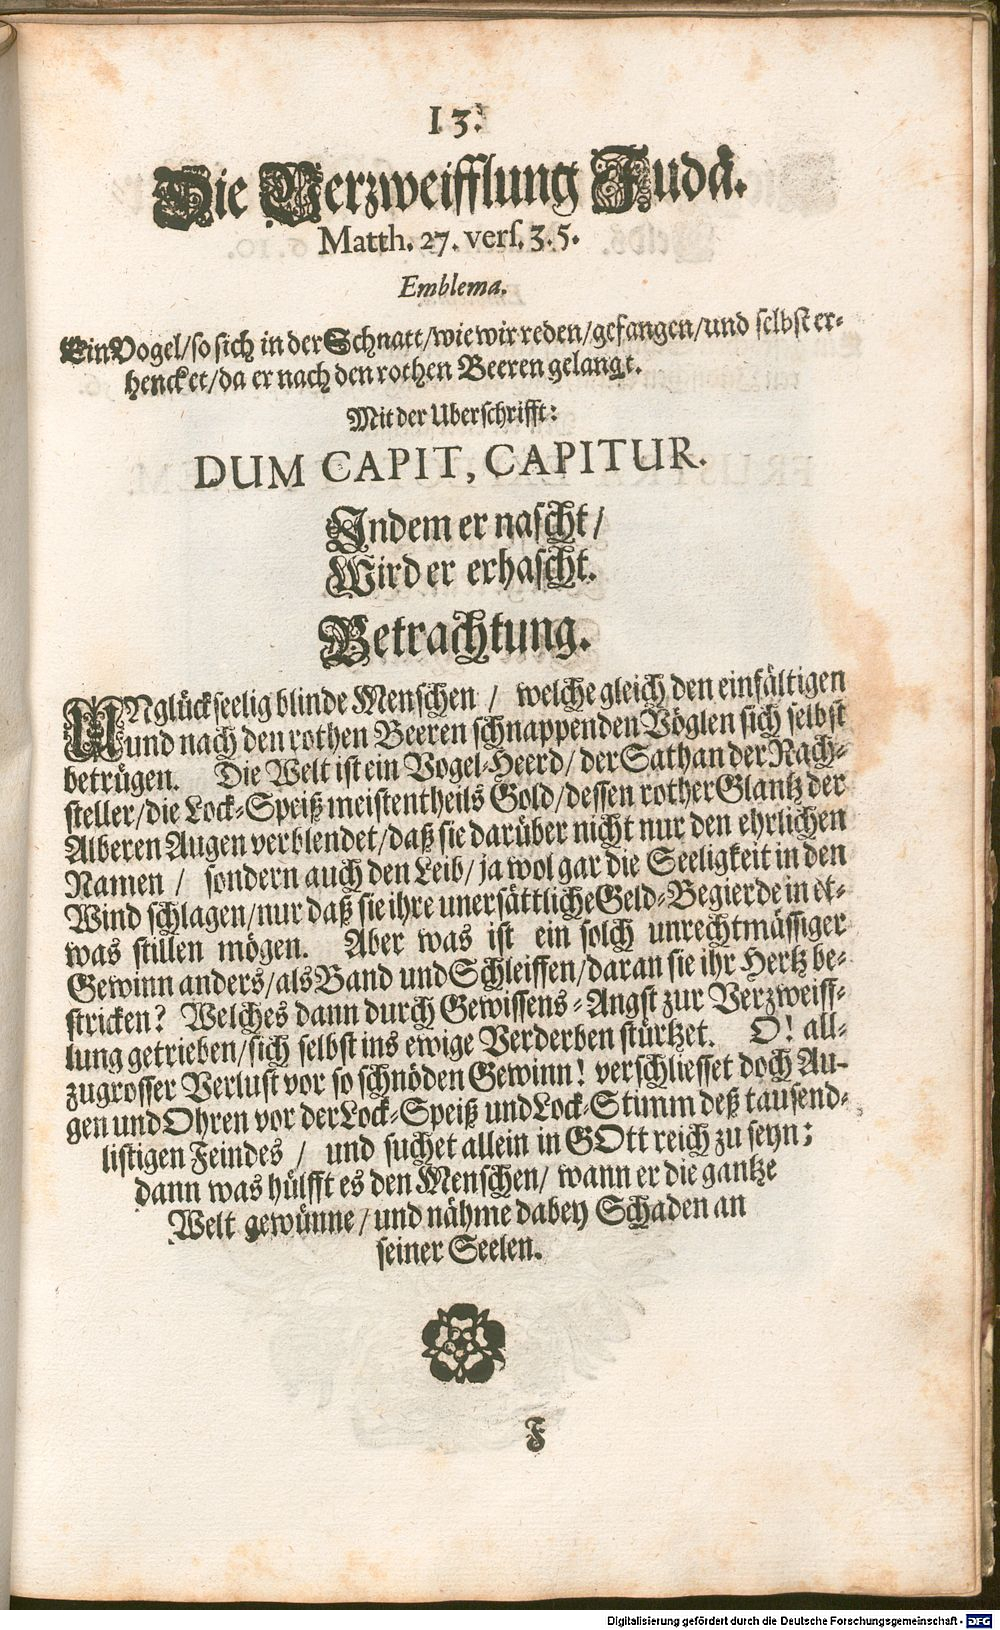 13.
Die Verzweifflung Judä.
Matth. 27. vers. 3. 5.
Emblema.
Ein Vogel/ so sich in der Schnatt/ wie wir reden/ gefangen/ und selbst er-
hencket/ da er nach den rothen Beeren gelangt.
Mit der Uberschrifft:
DUM CAPIT, CAPITUR.
Indem er nascht/
Wird er erhascht.
Betrachtung.
UNglückseelig blinde Menschen / welche gleich den einfältigen
und nach den rothen Beeren schnappenden Vöglen sich selbst
betrügen. Die Welt ist ein Vogel-Heerd/ der Sathan der Nach-
steller/ die Lock-Speiß meistentheils Gold/ dessen rother Glantz der
Alberen Augen verblendet/ daß sie darüber nicht nur den ehrlichen
Namen / sondern auch den Leib/ ja wol gar die Seeligkeit in den
Wind schlagen/ nur daß sie ihre unersättliche Geld-Begierde in et-
was stillen mögen. Aber was ist ein solch unrechtmässiger
Gewinn anders/ als Band und Schleiffen/ daran sie ihr Hertz be-
stricken? Welches dann durch Gewissens-Angst zur Verzweiff-
lung getrieben/ sich selbst ins ewige Verderben stürtzet. O! all-
zugrosser Verlust vor so schnöden Gewinn! verschliesset doch Au-
gen und Ohren vor der Lock-Speiß und Lock-Stimm deß tausend-
listigen Feindes / und suchet allein in GOtt reich zu seyn;
dann was hülfft es den Menschen/ wann er die gantze
Welt gewünne/ und nähme dabey Schaden an
seiner Seelen.
F
Digitalisierung gefördert durch die Deutsche Forschungsgemeinschaft - DFG